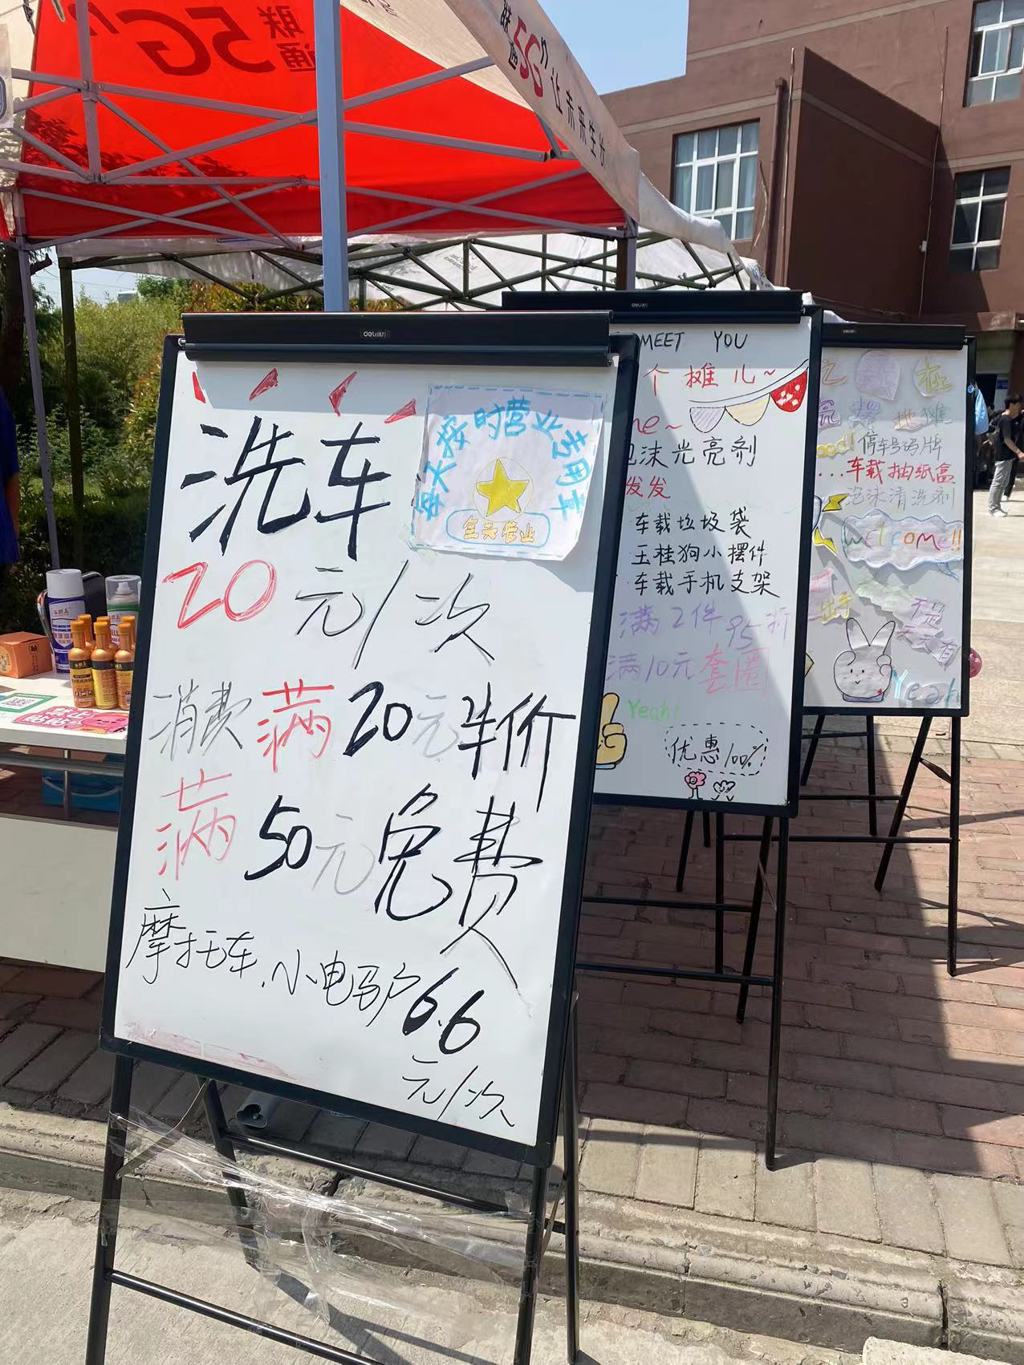 联通 5Gⁿ
联通 5Gⁿ 让未来生长
deli
洗车
每天按时营业专用卡
宝贝营业
20元/次
消费满20元半价
满50元免费
摩托车.小电驴6.6
元/次
MEET YOU
个摊儿~
me~
泡沫光亮剂
发发
车载垃圾袋
玉桂狗小摆件
车载手机支架
满2件95折
满10元套圈
Yeah!
优惠100%
地摊
停车号码牌
...车载抽纸盒
泡沫清洗剂
Welcome!!
Yeah